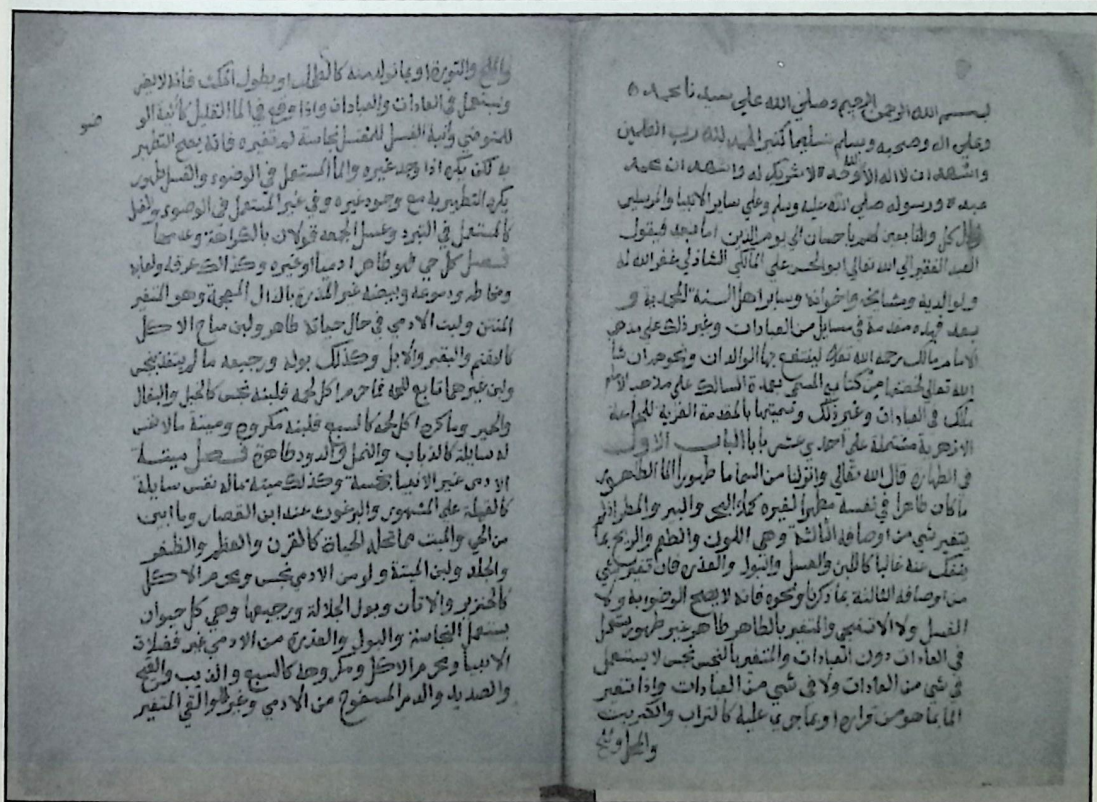 بسم الله الرحمن الرحيم وصلي الله علي سيدنا محمد
وعلي اله وصحبه وسلم تسليما كثيرا الحمد لله رب العلمين
واشهد ان لا اله الا الله وحده لا شريك له واشهد ان محمدا
عبده ورسوله صلي الله عليه وسلم وعلي ساير الانبيا والمرسلين
وال كل والتابعين لهم باحسان الي يوم الدين اما بعد فيقول
العبد الفقير الي الله تعالي ابو الحسن علي المالكي الشاذلي غفر الله له
ولوالديه ومشايخه واخوانه وساير اهل السنة المحمدية و
بعد فهذه مقدمة في مسايل من العبادات وغير ذلك علي مذهب
الامام مالك رحمه الله تعالي لينتفع بها الوالدان ونحوهم ان شا
الله تعالي لخصتها من كتابي المسمي بعمدة السالك علي مذهب الامام
ملك في العبادات وغير ذلك وسميتها بالمقدمة العزية للجماعة
الازهرية مشتملة علي احدي عشر بابا الباب الاول
في الطهارة قال الله تعالي وانزلنا من السما ما طهورا الما الطهور
ما كان طاهرا في نفسه مطهرا لغيره كماء البحر والبير والمطر اذا لم
يتغير شي من اوصافه الثالثة وهي اللون والطعم والريح بما
ينفك عنه غالبا كاللبن والعسل والبول والعذرة فان تغير شي
من اوصافه الثالثة بما ذكرنا ونحوه فانه لا يصح الوضو به ولا
الغسل ولا الاستنجي والمتغير بالطاهر طاهر غير طهور يستعمل
في العادات دون العبادات والمتغير بالنجس نجس لا يستعمل
في شي من العادات ولا في شي من العبادات واذا تغير
الما بما هو من قراره او بما جري عليه كالتراب والكبريت
والملح
والملح والنورة او بما تولد منه كالطحلب او بطول المكث فانه لا يضر
ويستعمل في العادات والعبادات واذا وقع في الما القليل كانية الو
ضو
للمتوضي وانية الغسل للمغتسل نجاسة لم تغيره فانه يصح التطهر
به لكن يكره اذا وجد غيره والما المستعمل في الوضوء والغسل طهور
يكره التطهير به مع وجود غيره وفي غير المستعمل في الوضوء والغسل
كالمستعمل في التبرد وغسل الجمعه قولان بالكراهة وعدمها
فصل كل حي فهو طاهر ادميا او غيره وكذلك عرقه ولعابه
ومخاطه ودموعه وبيضه غير المذر بالذال المعجمة وهو المتغير
المنتن ولبن الادمي في حال حياته طاهر ولبن مباح الاكل
كالغنم والبقر والابل وكذلك بوله ورجيعه ما لم يتغذ بنجس
ولبن غيرهما تابع للحمه فما حرم اكل لحمه فلبنه نجس كالخيل والبغال
والحمير وما كره اكل لحمه كالسبع فلبنه مكروه وميتة ما لا نفس
له سايلة كالذباب والنمل والدود طاهرة فصل ميتة
الادمي غير الانبيا نجسة وكذلك ميتة ماله نفس سايلة
كالقملة علي المشهور والبرغوث عند ابن القصار وما ابين
من الحي والميت مما تحله الحياة كالقرن والعظم والظفر
والجلد ولبن الميتة ولو من الادمي نجس ومحرم الاكل
كالخنزير والاتان وبول الجلالة ورجيعها وهي كل حيوان
يستعمل النجاسة والبول والعذرة من الادمي غير فضلات
الانبيا ومحرم الاكل ومكروهه كالسبع والذيب والقيح
والصديد والدم المسفوح من الادمي وغيره والقي المتغير